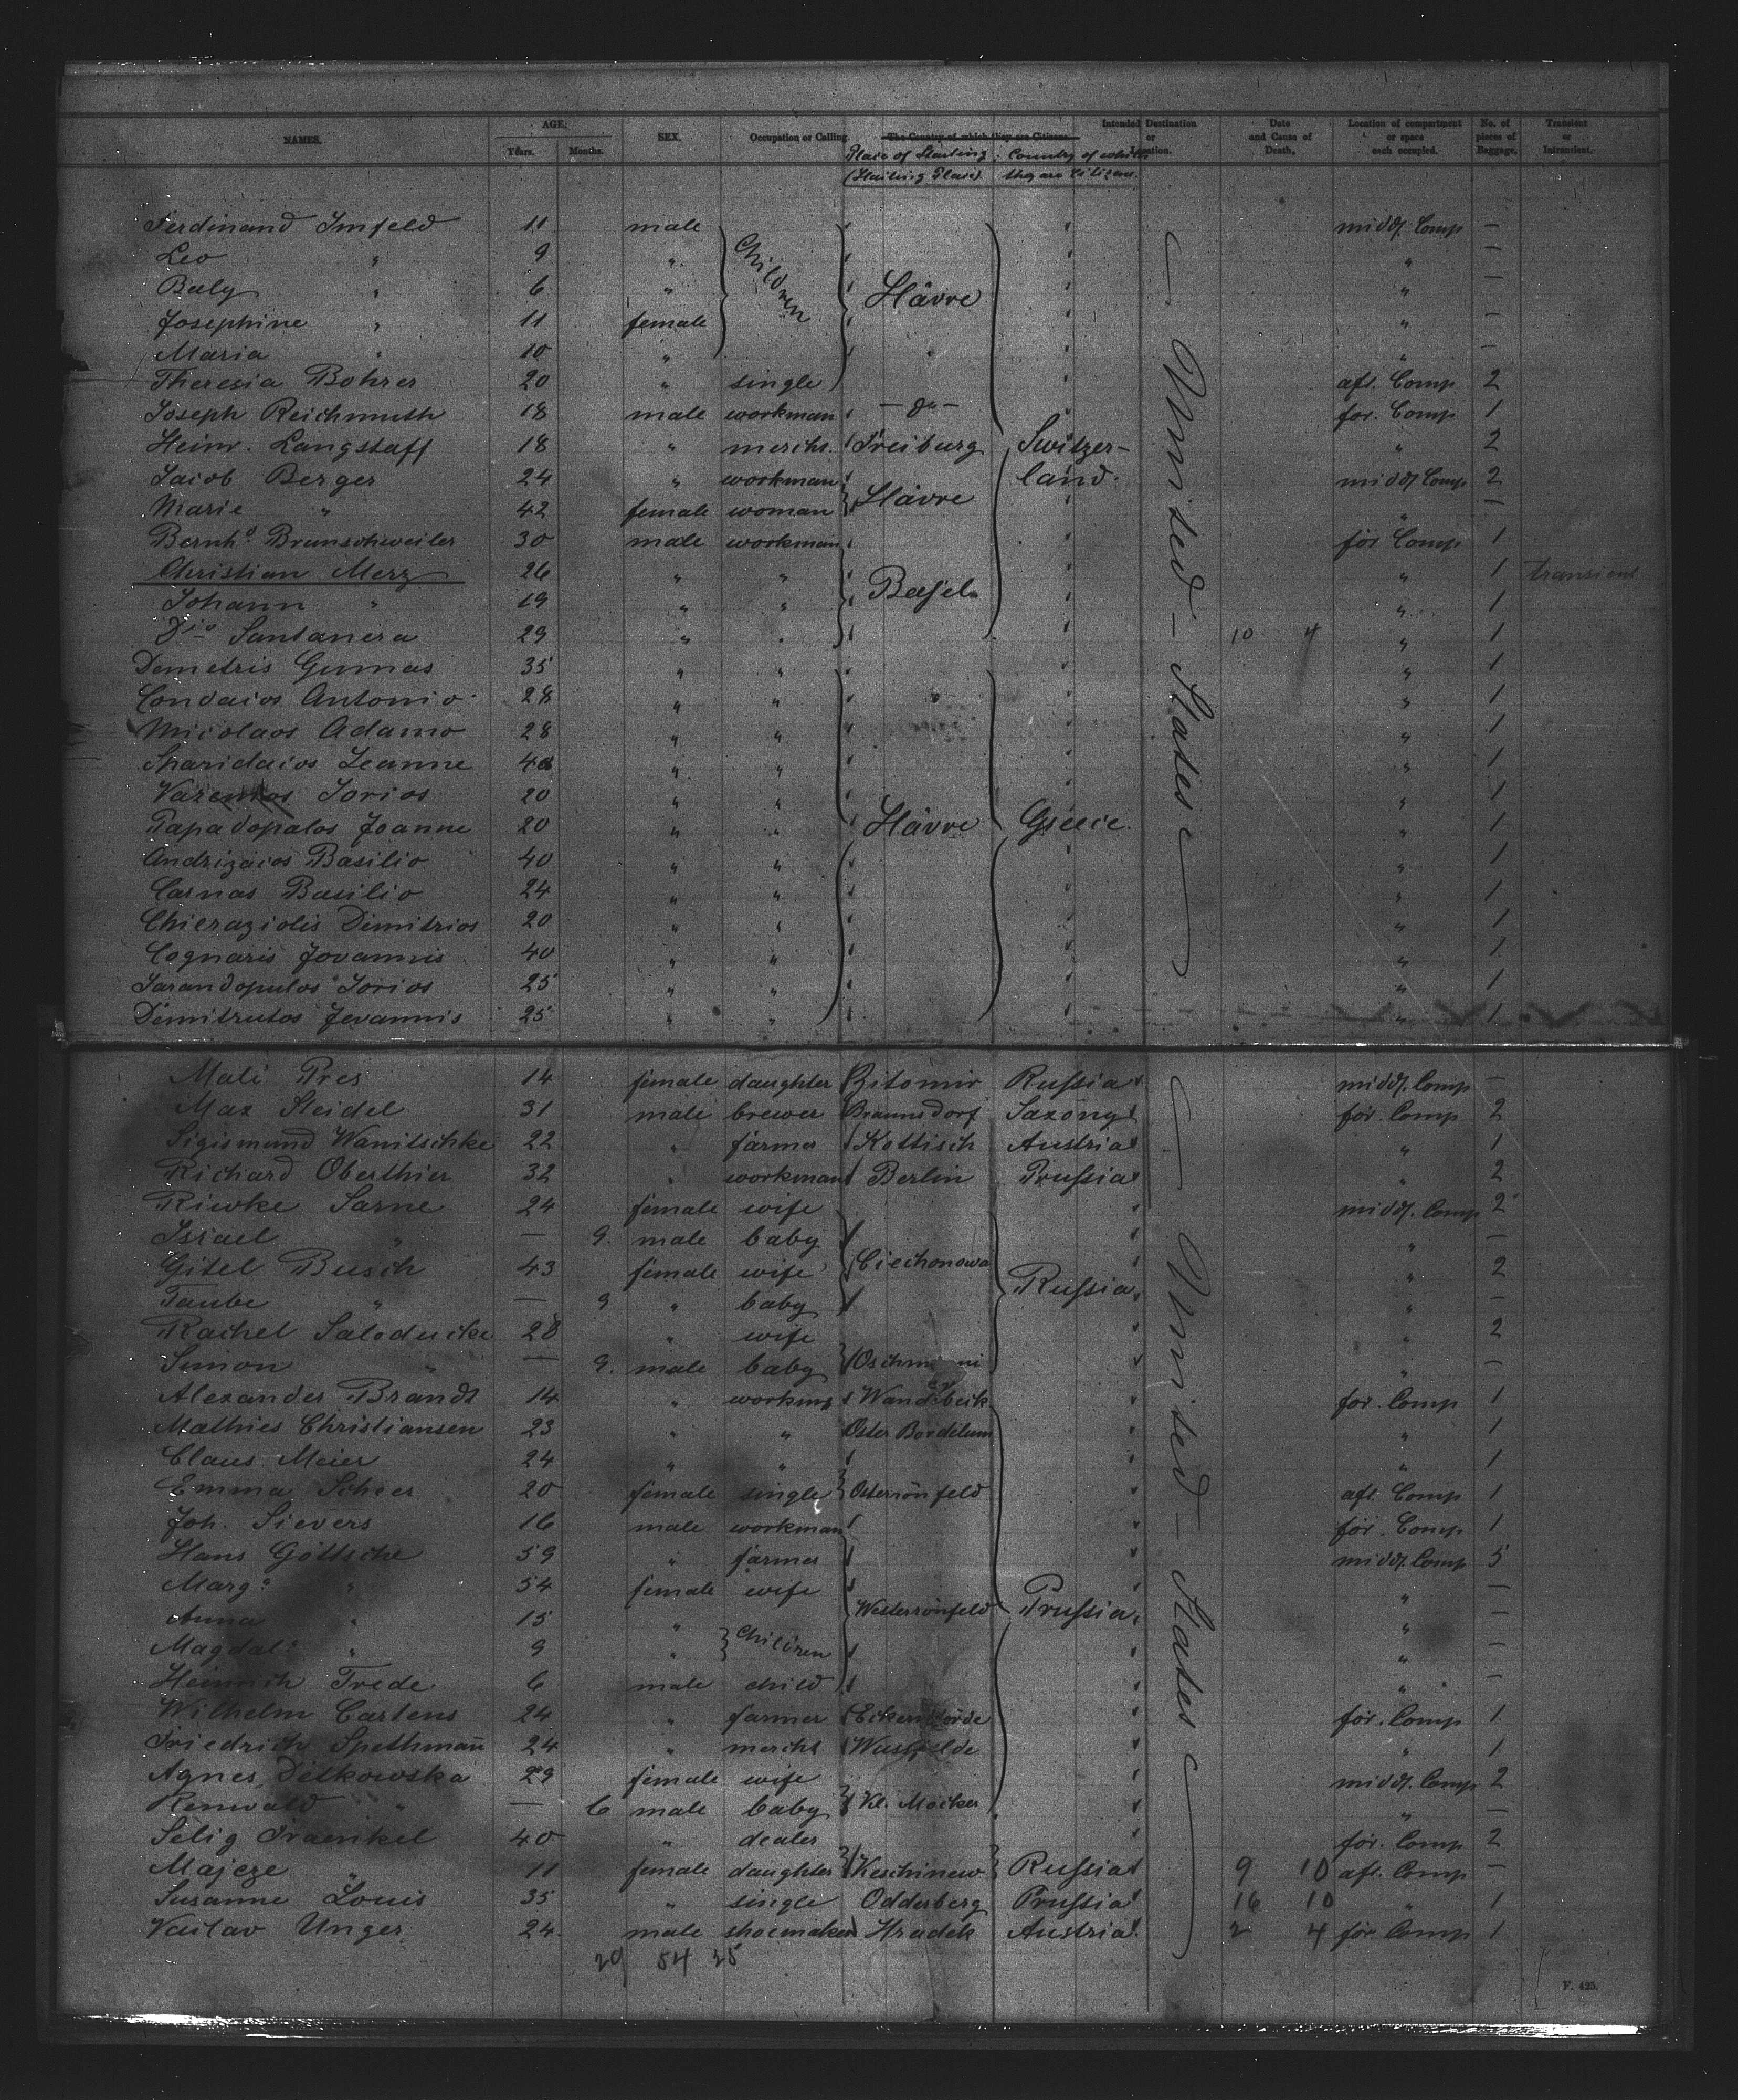 NAMES. AGE. Years. Months. SEX. Occupation or Calling. The Country of which they are Citizens. Intended Destination or Location. Date and Cause of Death. Location of compartment or space each occupied. No. of pieces of Baggage. Transient or Intransient.
Place of Starting (Starting Place) Country of which they are Citizens.
Ferdinand Imfeld 11 male Children Hâvre Switzerland United States middl. Comp —
Leo " 9 " " —
Baly " 6 " " —
Josephine " 11 female " —
Maria " 10 " " " —
Theresia Bohrer 20 " single aft. Comp 2
Joseph Reichmuth 18 male workman — do — for. Comp 1
Heinr. Langstaff 18 " merchs. Freiburg " 2
Jacob Berger 24 " workman Hâvre middl Comp 2
Marie " 42 female woman " —
Bernhd. Brunschweiler 30 male workman Basel for Comp 1
Christian Merz 26 " " " 1 transient
Johann " 19 " " " 1
Dio Santanera 29 " " 10 4 " 1
Demetris Gumas 35 " " Hâvre Greece " 1
Condaios Antonio 28 " " " " 1
Nicolaos Adamo 28 " " " 1
Sparidaios Jeanne 40 " " " 1
Jorios 20 " " " 1
Papadopalos Joanne 20 " " " 1
Andrizaios Basilio 40 " " " 1
Carnas Basilio 24 " " " 1
Chieraziolis Dimitrios 20 " " " 1
Cognaris Jovannis 40 " " " 1
Sarandopulos Jorios 25 " " " 1
Dimitrutos Jevannis 25 " " " 1
Mali Pres 14 female daughter Zitomir Russia United States middl. Comp —
Max Steidel 31 male brewer Braunsdorf Saxony for. Comp 2
Sigismund Wanitschke 22 " farmer Kottisch Austria " 1
Richard Oberthier 32 " workman Berlin Prussia " 2
Riwke Sarne 24 female wife Ciechonowa Russia middl. Comp 2
Israel " — 9. male baby " —
Gitel Busch 43 female wife " 2
Taube " — 9 " baby " —
Rachel Saloducke 28 " wife " 2
Simon " — 9. male baby " —
Alexander Brandt 14 " workm Wandsbeck Prussia for. Comp 1
Mathies Christiansen 23 " " Oster Bordelum " 1
Claus Meier 24 " " " 1
Emma Scheer 20 female single Osterrönfeld aft. Comp 1
Joh. Sievers 16 male workman for. Comp 1
Hans Göttsche 59 " farmer Westerrönfeld middl. Comp 5
Marga " 54 female wife " —
Anna " 15 " Children " —
Magdala " 9 " " —
Heinrich Trede 6 male child " —
Wilhelm Carstens 24 " farmer Eckernförde for. Comp 1
Friedrich Spethmann 24 " mercht " 1
Agnes Ditkowska 29 female wife Kl. Mocker middl. Comp 2
Renwald " — 6 male baby " —
Selig Fraenkel 40 " dealer Keschinew Russia for. Comp 2
Majcze " 11 female daughter 9 10 aft. Comp —
Susanne Louis 35 " single Odderberg Prussia 16 10 " 1
Vaclav Unger 24 male shoemaker Hradek Austria 2 4 for. Comp 1
29 54 25
F. 425.